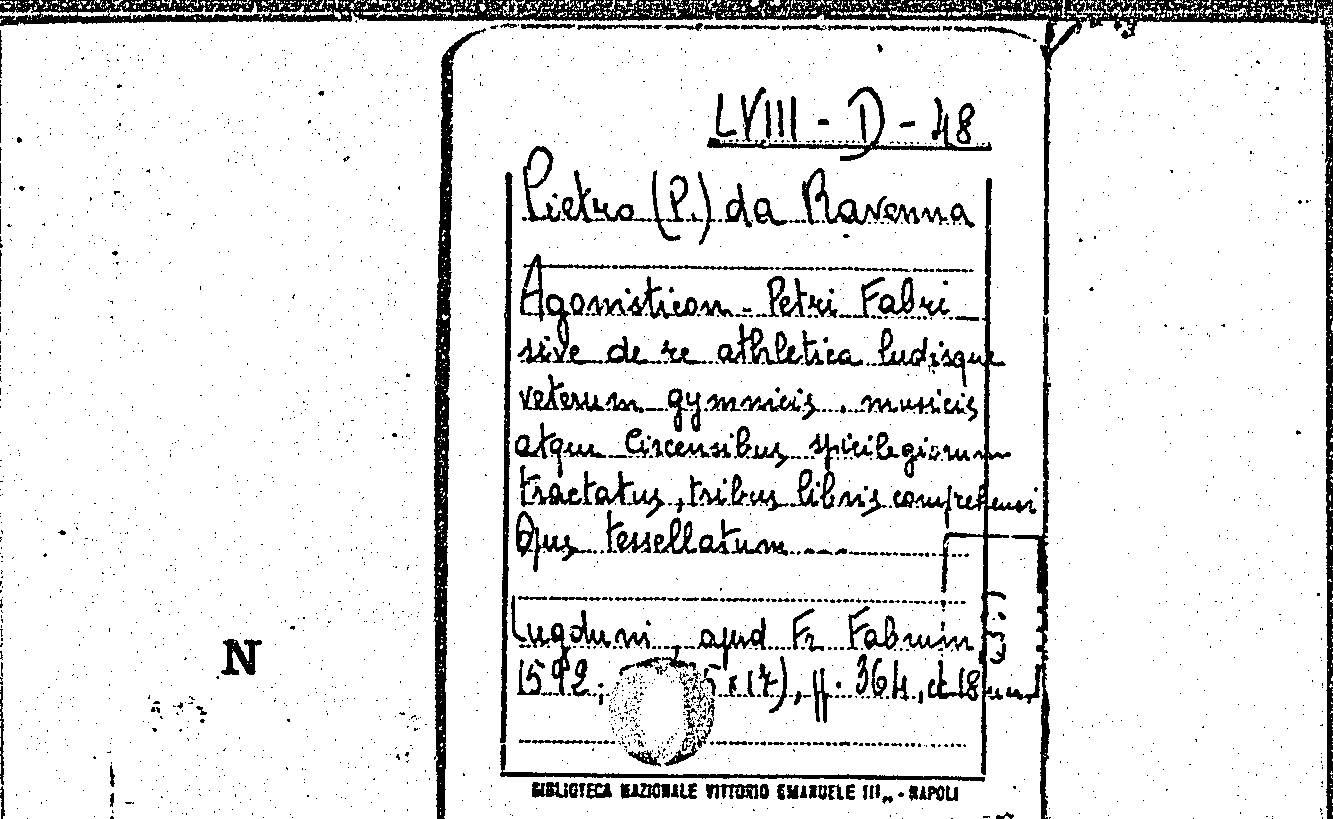 LVIII - D - 48
Pietro (P.) da Ravenna
Agonisticon - Petri Fabri
sive de re athletica ludisque
veterum gymnicis, musicis
atque Circensibus spicilegiorum
tractatus, tribus libris comprehensi
Opus tessellatum ....
Lugduni, apud Fr. Fabrum
1592; 5 x 17), ff. 364, et 18
N
BIBLIOTECA NAZIONALE VITTORIO EMANUELE III,, - NAPOLI